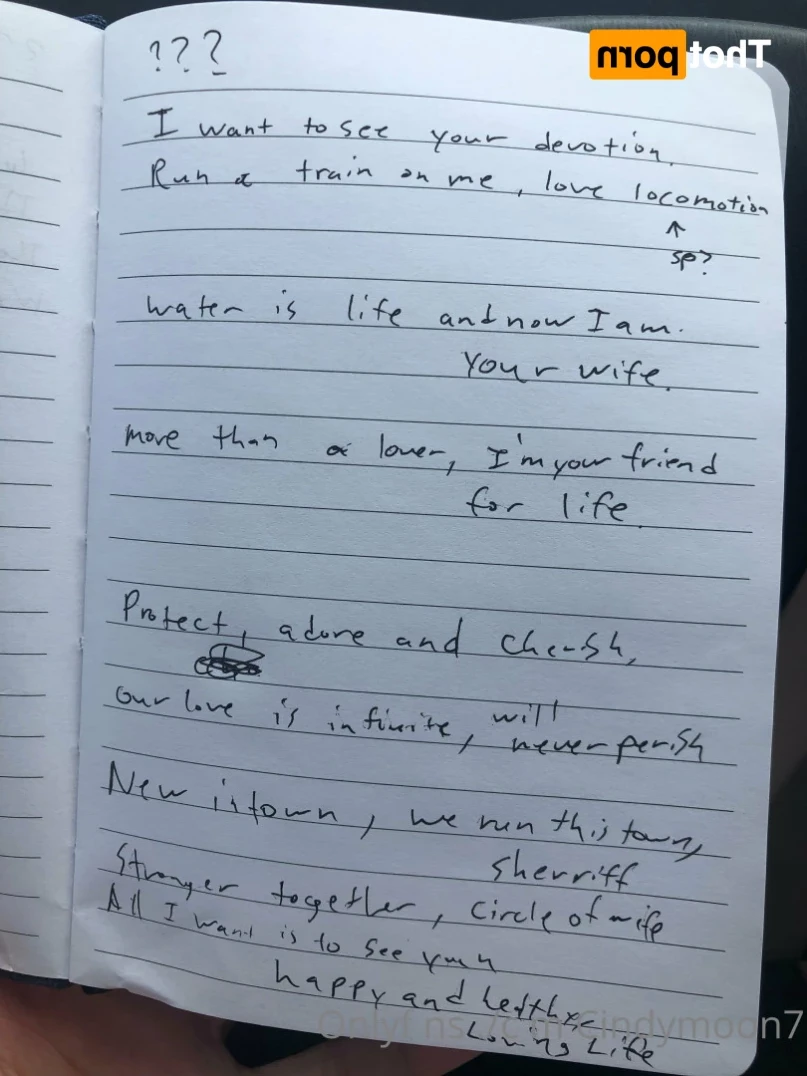 ???
Thot porn
I want to see your devotion.
Run a train on me, love locomotion
↑
sp?
Water is life and now I am.
Your wife.
more than a lover, I'm your friend
for life.
Protect, adore and cherish,
our love is infinite, will
never perish
New in town, we run this town,
Sherriff
Stronger together, circle of wife
All I want is to see you
happy and
Loving Life